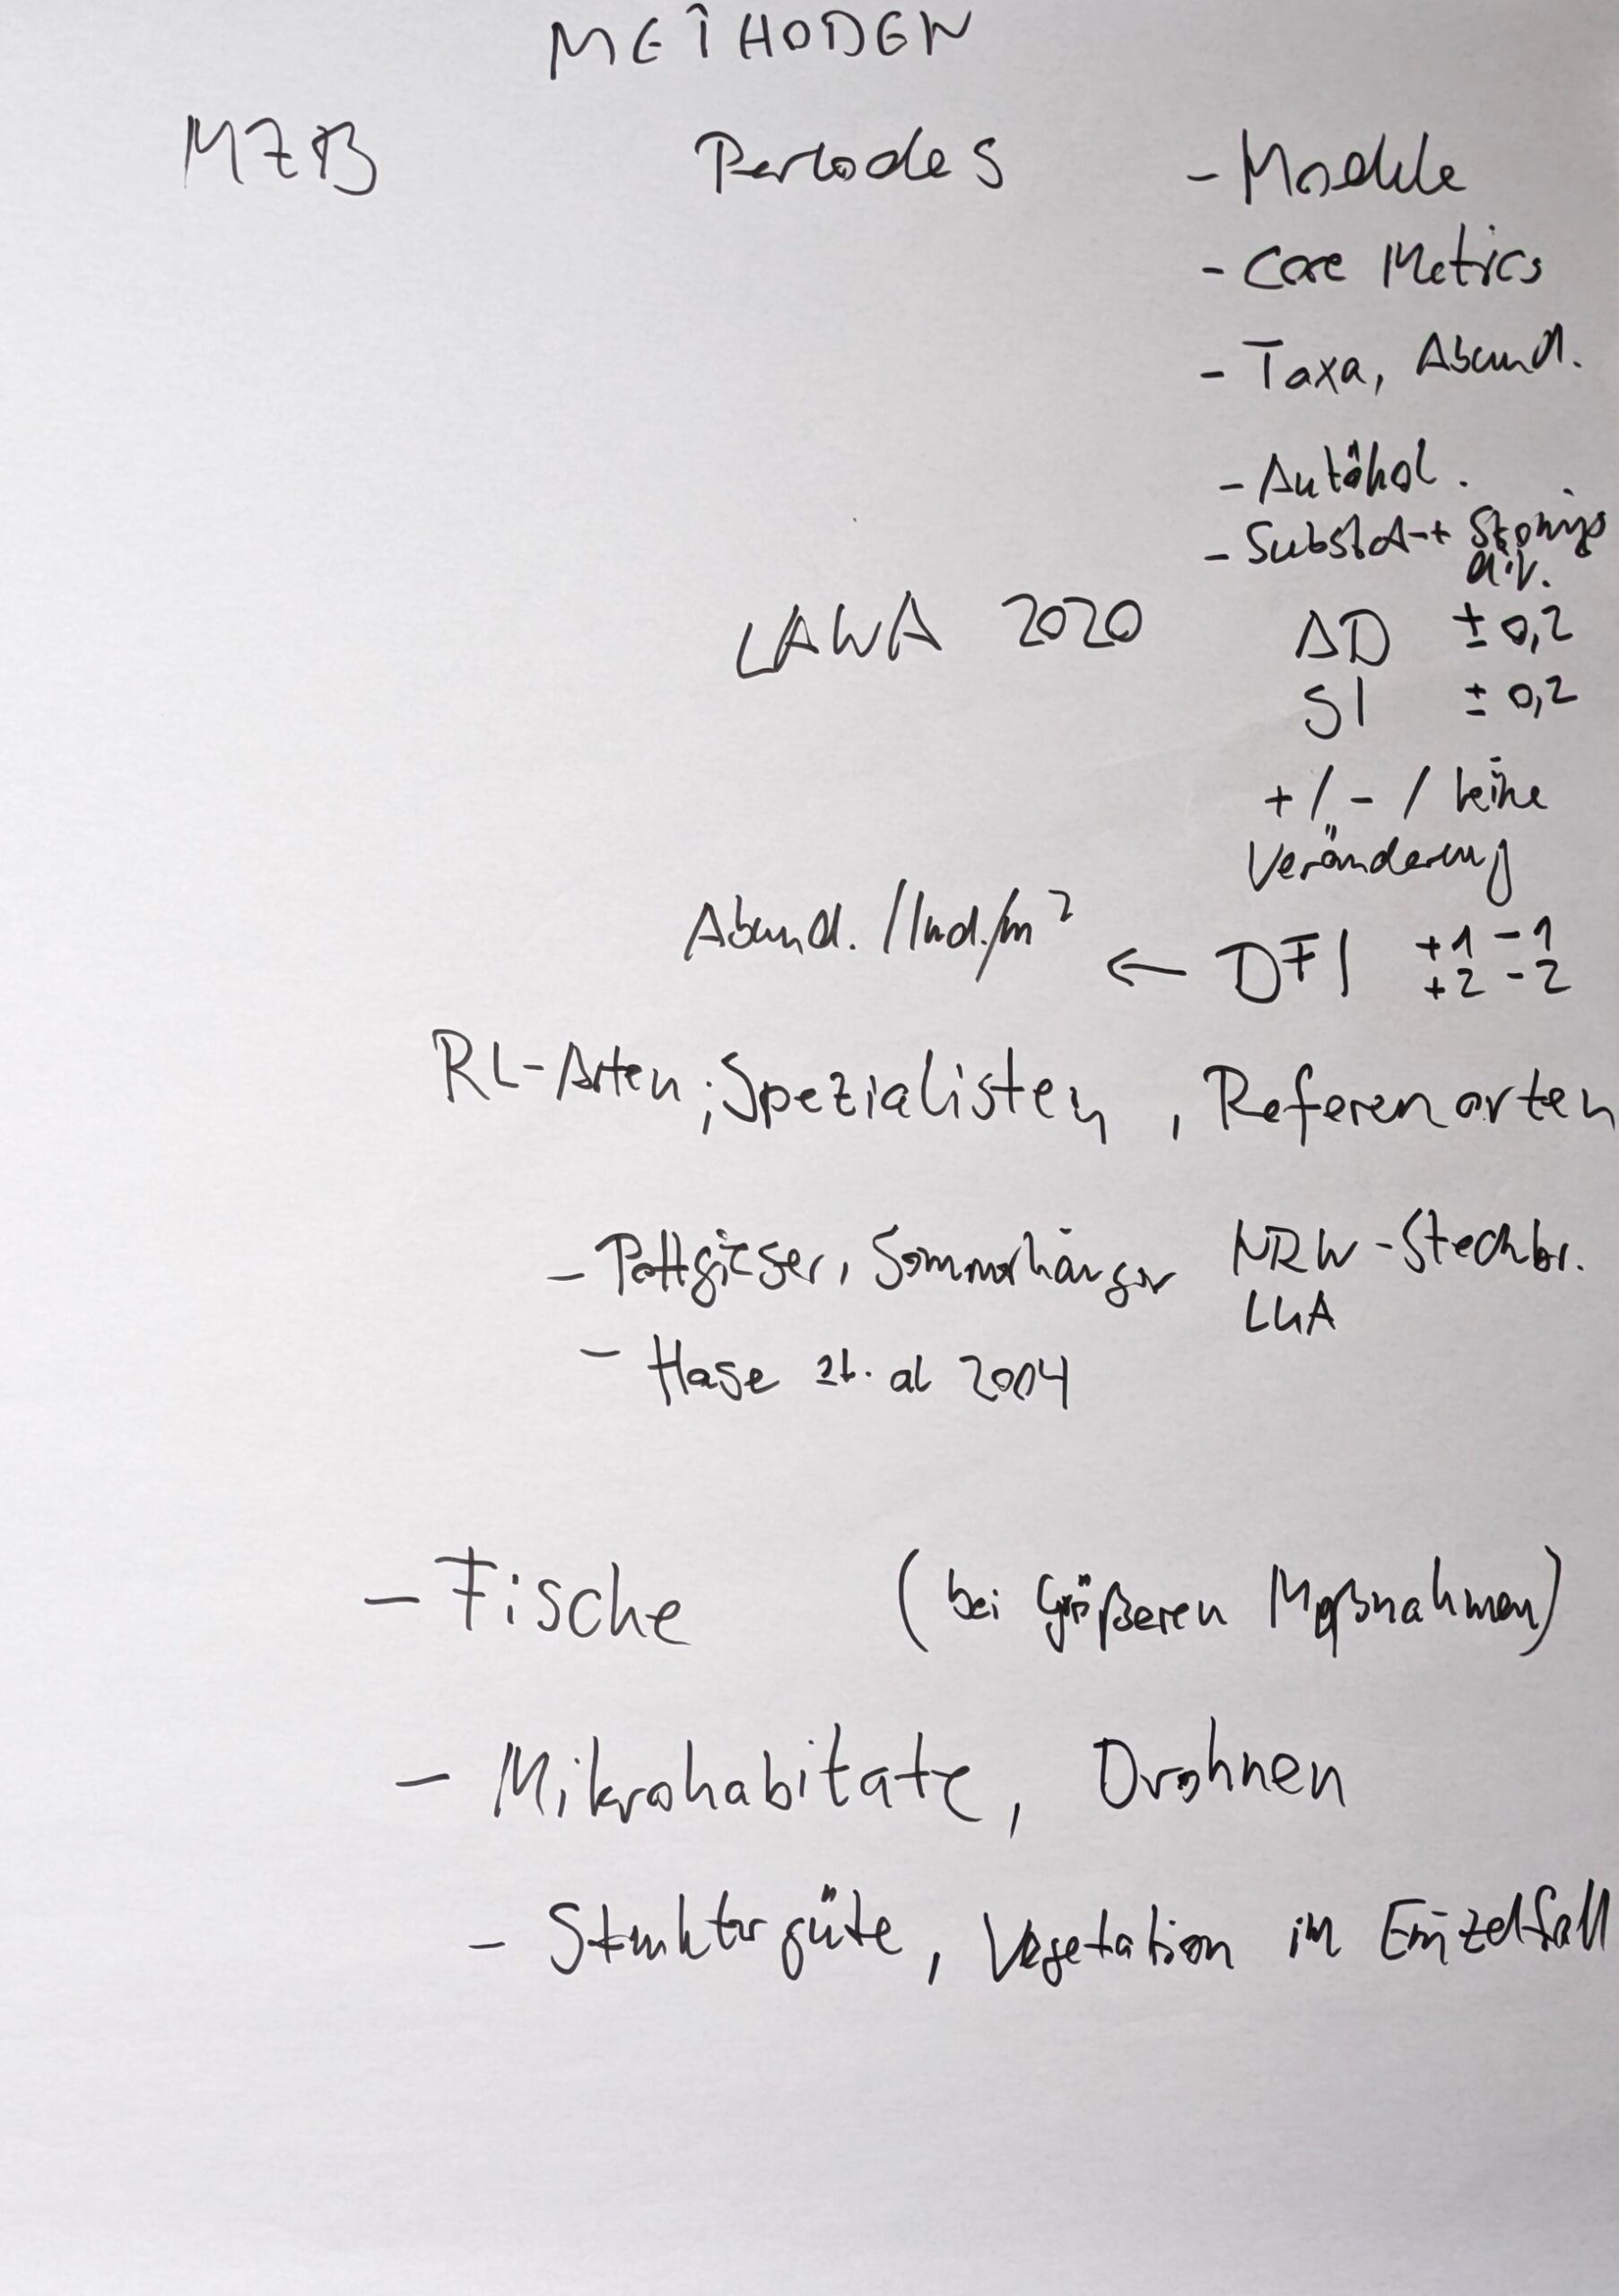 METHODEN
MZB Perlodes - Module
- Core Metrics
- Taxa, Abund.
- Autökol.
- Substrat- + Strömgs
div.
LAWA 2020 ΔD ± 0,2
SI ± 0,2
+ / - / keine
Veränderung
Abund. / Ind./m² ← DFI +1 -1
+2 -2
RL-Arten ; Spezialisten , Referenarten
- Pottgießer, Sommerhäuser NRW-Steckbr.
LUA
- Hase et. al 2004
- Fische (bei größeren Maßnahmen)
- Mikrohabitate, Drohnen
- Strukturgüte, Vegetation im Einzelfall